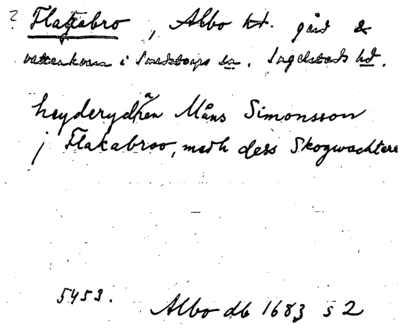 ? Flakabro, Albo hd. gård &
vattenkvarn i Smedstorps sn. Ingelstads hd.
heyderydhen Måns Simonsson
j Flakabroo, medh dess Skogwachtere
5453. Albo db 1683 s 2